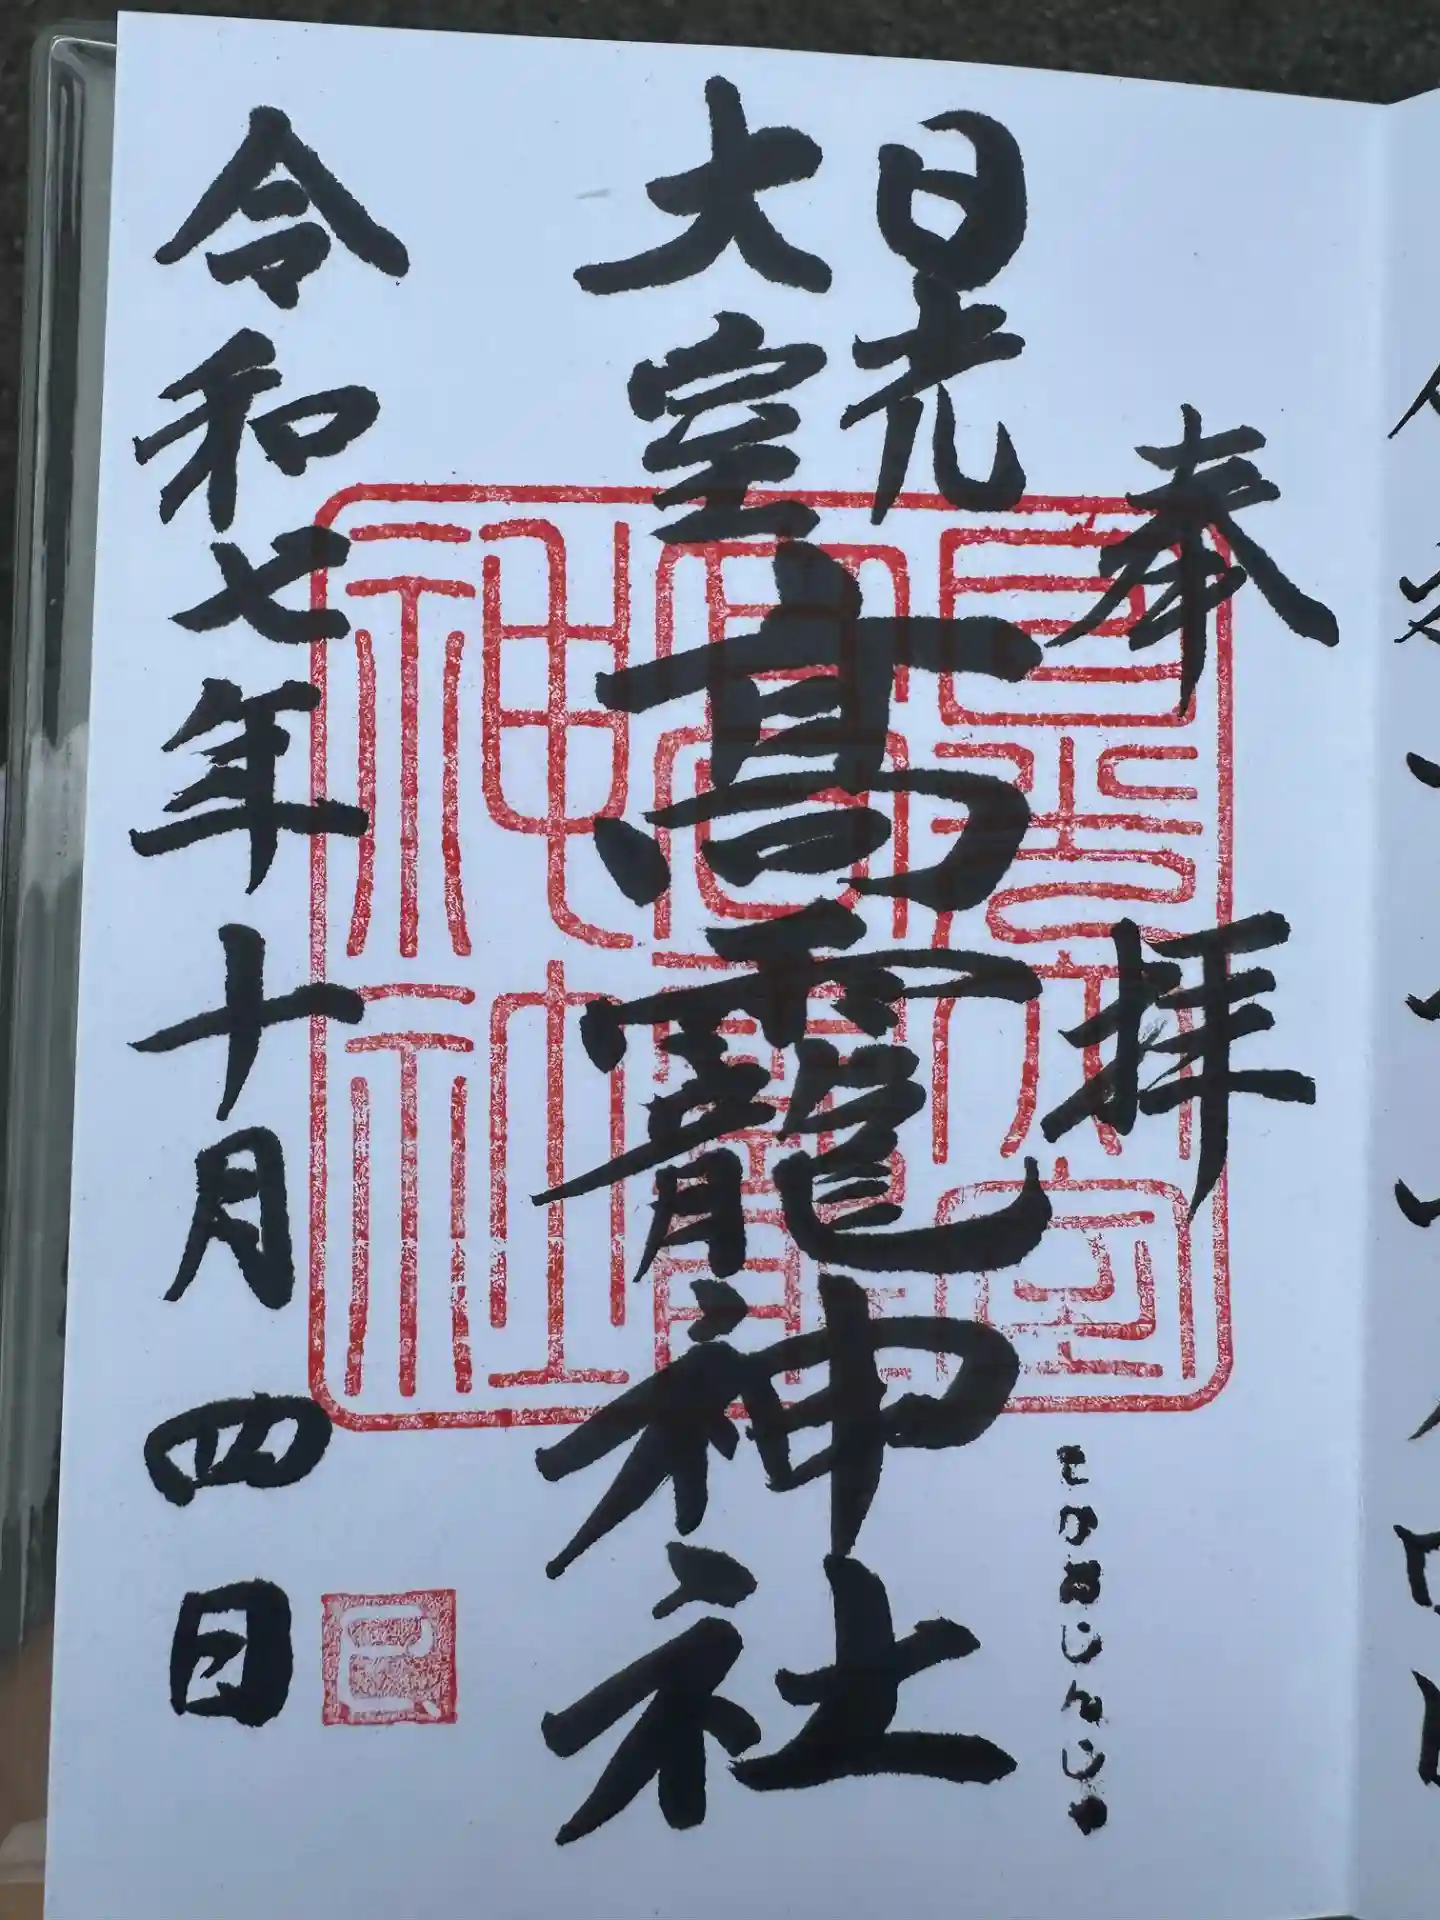 奉拝
日光
大室高龗神社
たかおじんじゃ
令和七年十月四日
巳